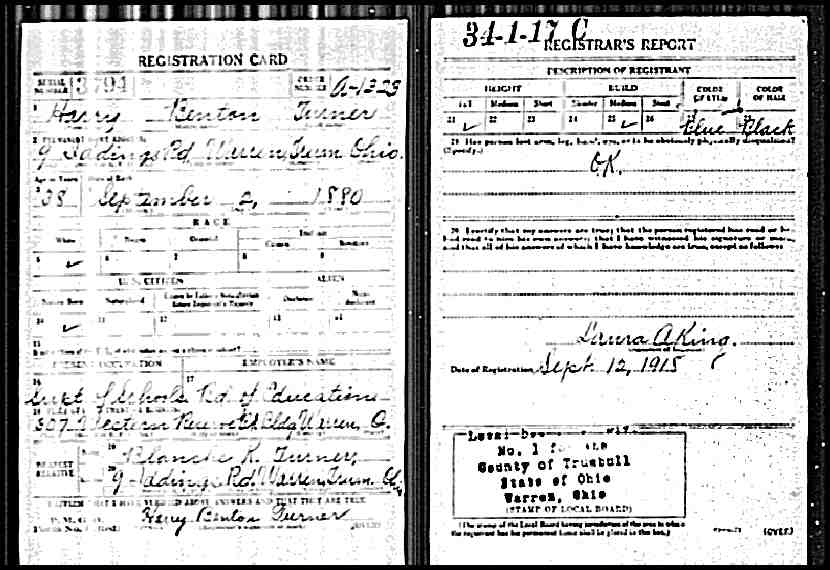 REGISTRATION CARD
SERIAL NUMBER 3794 ORDER NUMBER A-1328
1 Harry Benton Turner
2 PERMANENT HOME ADDRESS
Giddings Rd Warren, Trum Ohio.
Age in Years Date of Birth
38 September 2, 1880
RACE
White Negro Oriental Indian
Citizen
5 ✓ 6 7 8 9
U.S. CITIZEN ALIEN
Native Born Naturalized Declarant Non-declarant
10 ✓ 11 12 13 14
15
PRESENT OCCUPATION EMPLOYER'S NAME
16 17
Supt of Schools Bd of Education
307-9 Western Reserve Bldg Warren, O.
NEAREST RELATIVE
19 Blanche K. Turner
20 Giddings Rd. Warren, Trum. Oh.
I AFFIRM THAT I HAVE VERIFIED ABOVE ANSWERS AND THAT THEY ARE TRUE
P. M. G. O.
Harry Benton Turner
(OVER)
34-1-17 C
REGISTRAR'S REPORT
DESCRIPTION OF REGISTRANT
HEIGHT BUILD COLOR OF EYES COLOR OF HAIR
Tall Medium Short Slender Medium Stout
21 ✓ 22 23 24 25 ✓ 26 Blue Black
29 Has person lost arm, leg, hand, eye, or is he obviously physically disqualified?
(Specify.)
OK.
30 I certify that my answers are true; that the person registered has read or has
had read to him his own answers; that I have witnessed his signature or mark,
and that all of his answers of which I have knowledge are true, except as follows:
Laura A King.
Date of Registration Sept. 12, 1918
No. 1 for
County of Trumbull
State of Ohio
Warren, Ohio
(STAMP OF LOCAL BOARD)
(The stamp of the Local Board having jurisdiction of the area in which
the registrant has his permanent home shall be placed in this box.)
(OVER)